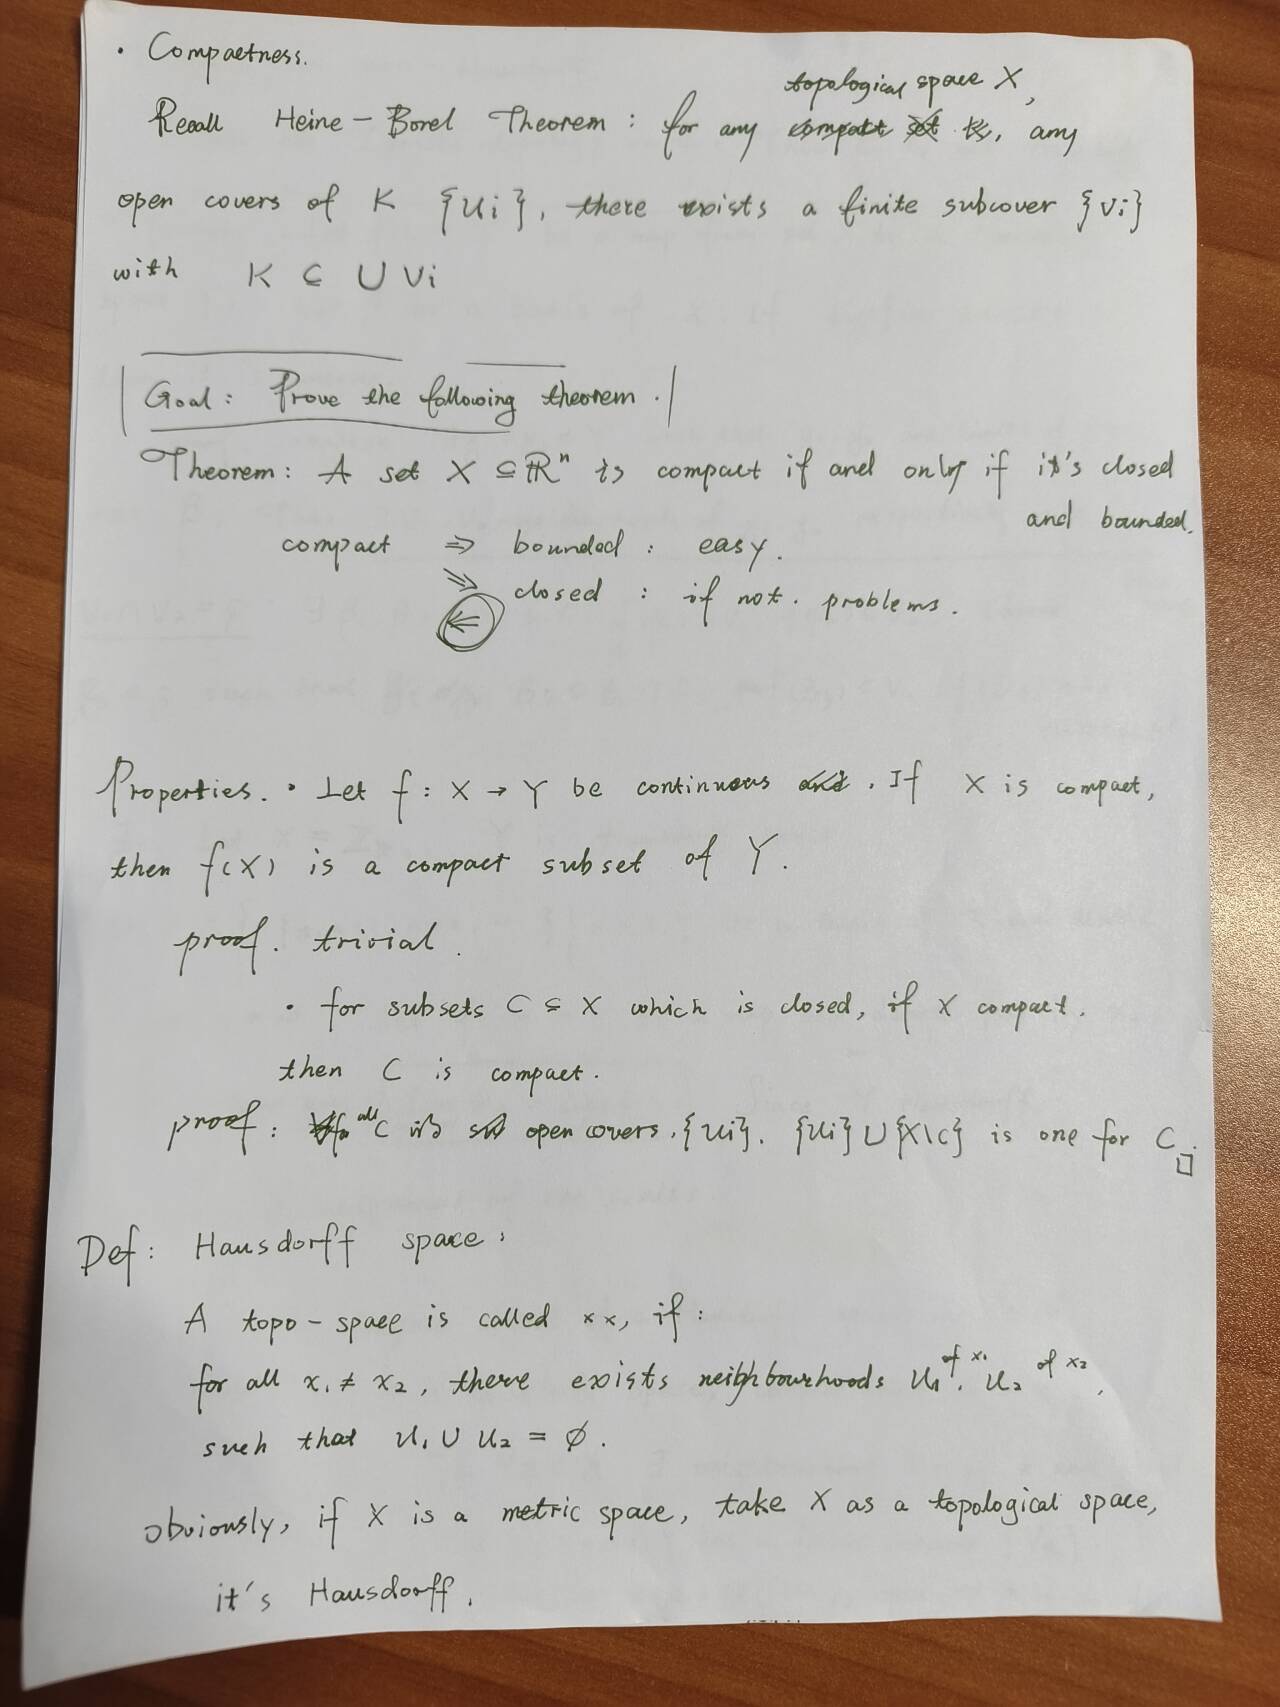 · Compactness.
topological space X,
Recall Heine-Borel Theorem: for any compact set K, any
open covers of K {Ui}, there exists a finite subcover {Vi}
with K ⊆ ∪ Vi
Goal: Prove the following theorem.
Theorem: A set X ⊆ ℝⁿ is compact if and only if it's closed
and bounded.
compact ⇒ bounded: easy.
⇒ closed: if not. problems.
⇐
Properties. · Let f: X → Y be continuous and. If X is compact,
then f(X) is a compact subset of Y.
proof. trivial.
· for subsets C ⊆ X which is closed, if X compact.
then C is compact.
proof: all C open covers. {Ui}. {Ui} ∪ {X\C} is one for C. □
Def: Hausdorff space:
A topo-space is called xx, if:
for all x₁ ≠ x₂, there exists neighbourhoods U₁ of x₁. U₂ of x₂,
such that U₁ ∪ U₂ = ∅.
obviously, if X is a metric space, take X as a topological space,
it's Hausdorff.